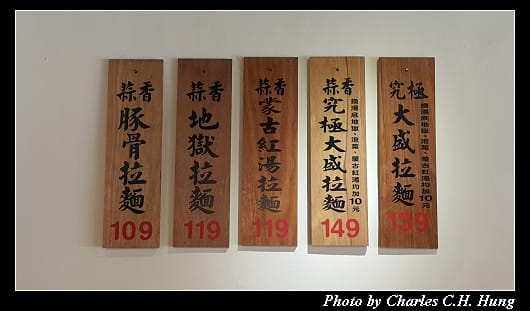 蒜香
豚骨拉麵
109
蒜香
地獄拉麵
119
蒜香
蒙古紅湯拉麵
119
蒜香
究極大盛拉麵
換湯底地獄、泡菜、蒙古紅湯均加10元
149
究極
大盛拉麵
換湯底地獄、泡菜、蒙古紅湯均加10元
139
Photo by Charles C.H. Hung